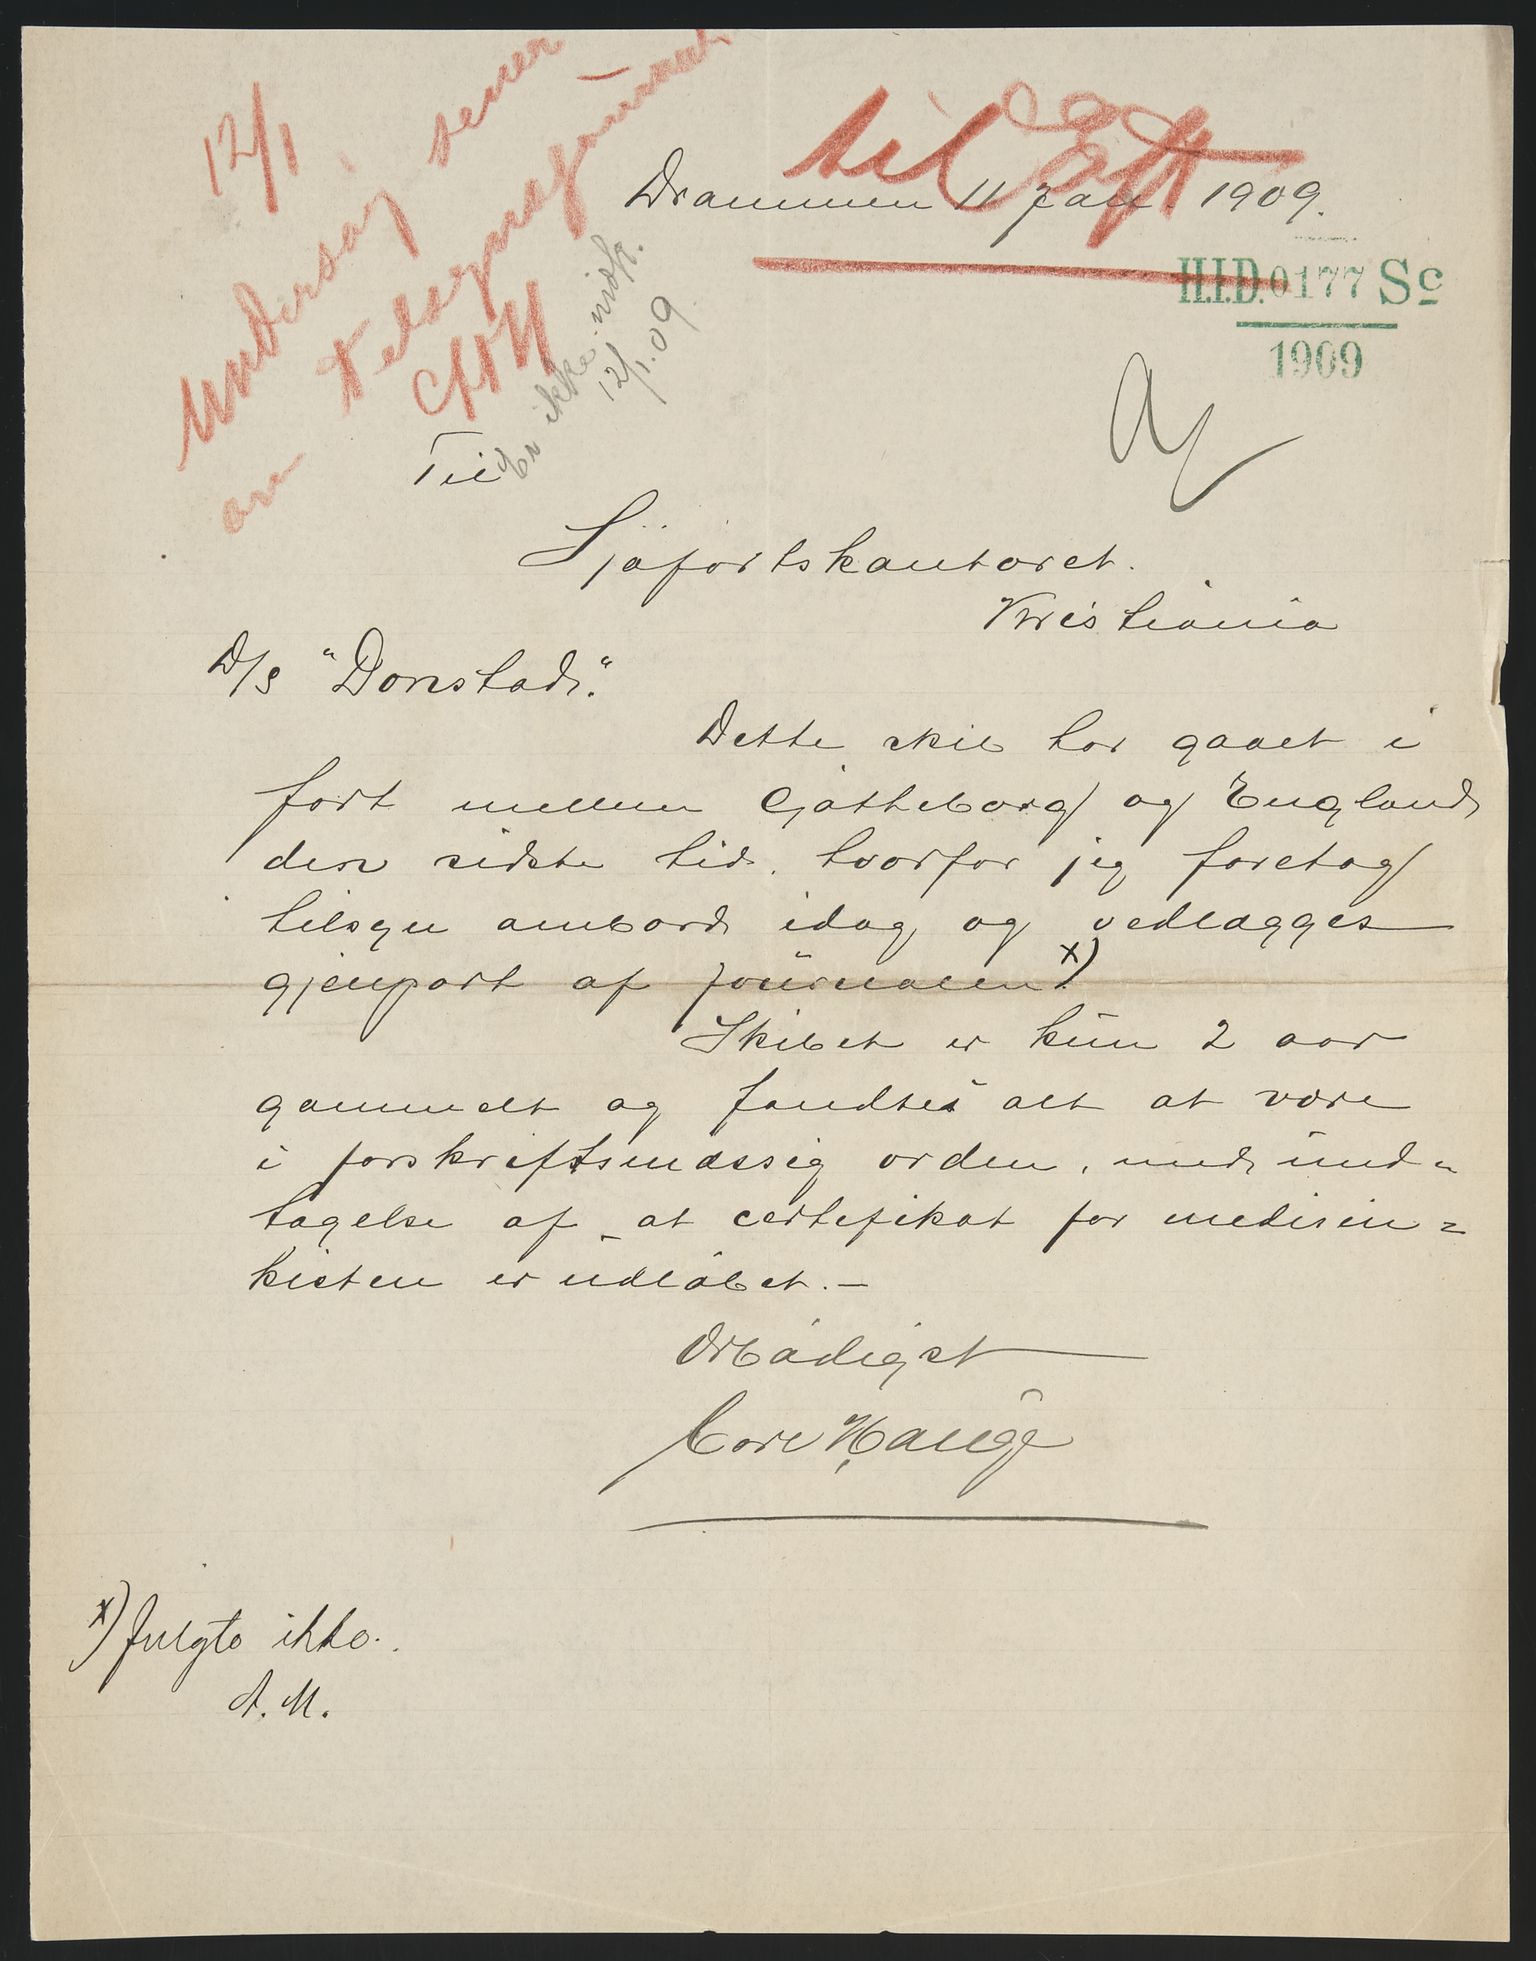 12/1
Undersøg senere
om
til
Drammen 11 Jan. 1909.
H.I.D. 0177 Sc
1909
Er ikke indk.
12/1.09
Til
Sjøfartskontoret.
Kristiania
D/S "Donstad."
Dette skib har gaaet i
fart mellem Gøtheborg og England
den sidste tid, hvorfor jeg foretog
tilsyn ombord idag og vedlægges
gjenpart af journalen x).
Skibet er kun 2 aar
gammelt og fandtes alt at være
i forskriftsmæssig orden, med und-
tagelse af at certifikat for medisin=
kisten er udløbet. –
Ærbødigst
Carl Hauge
x) fulgte ikke.
A. M.